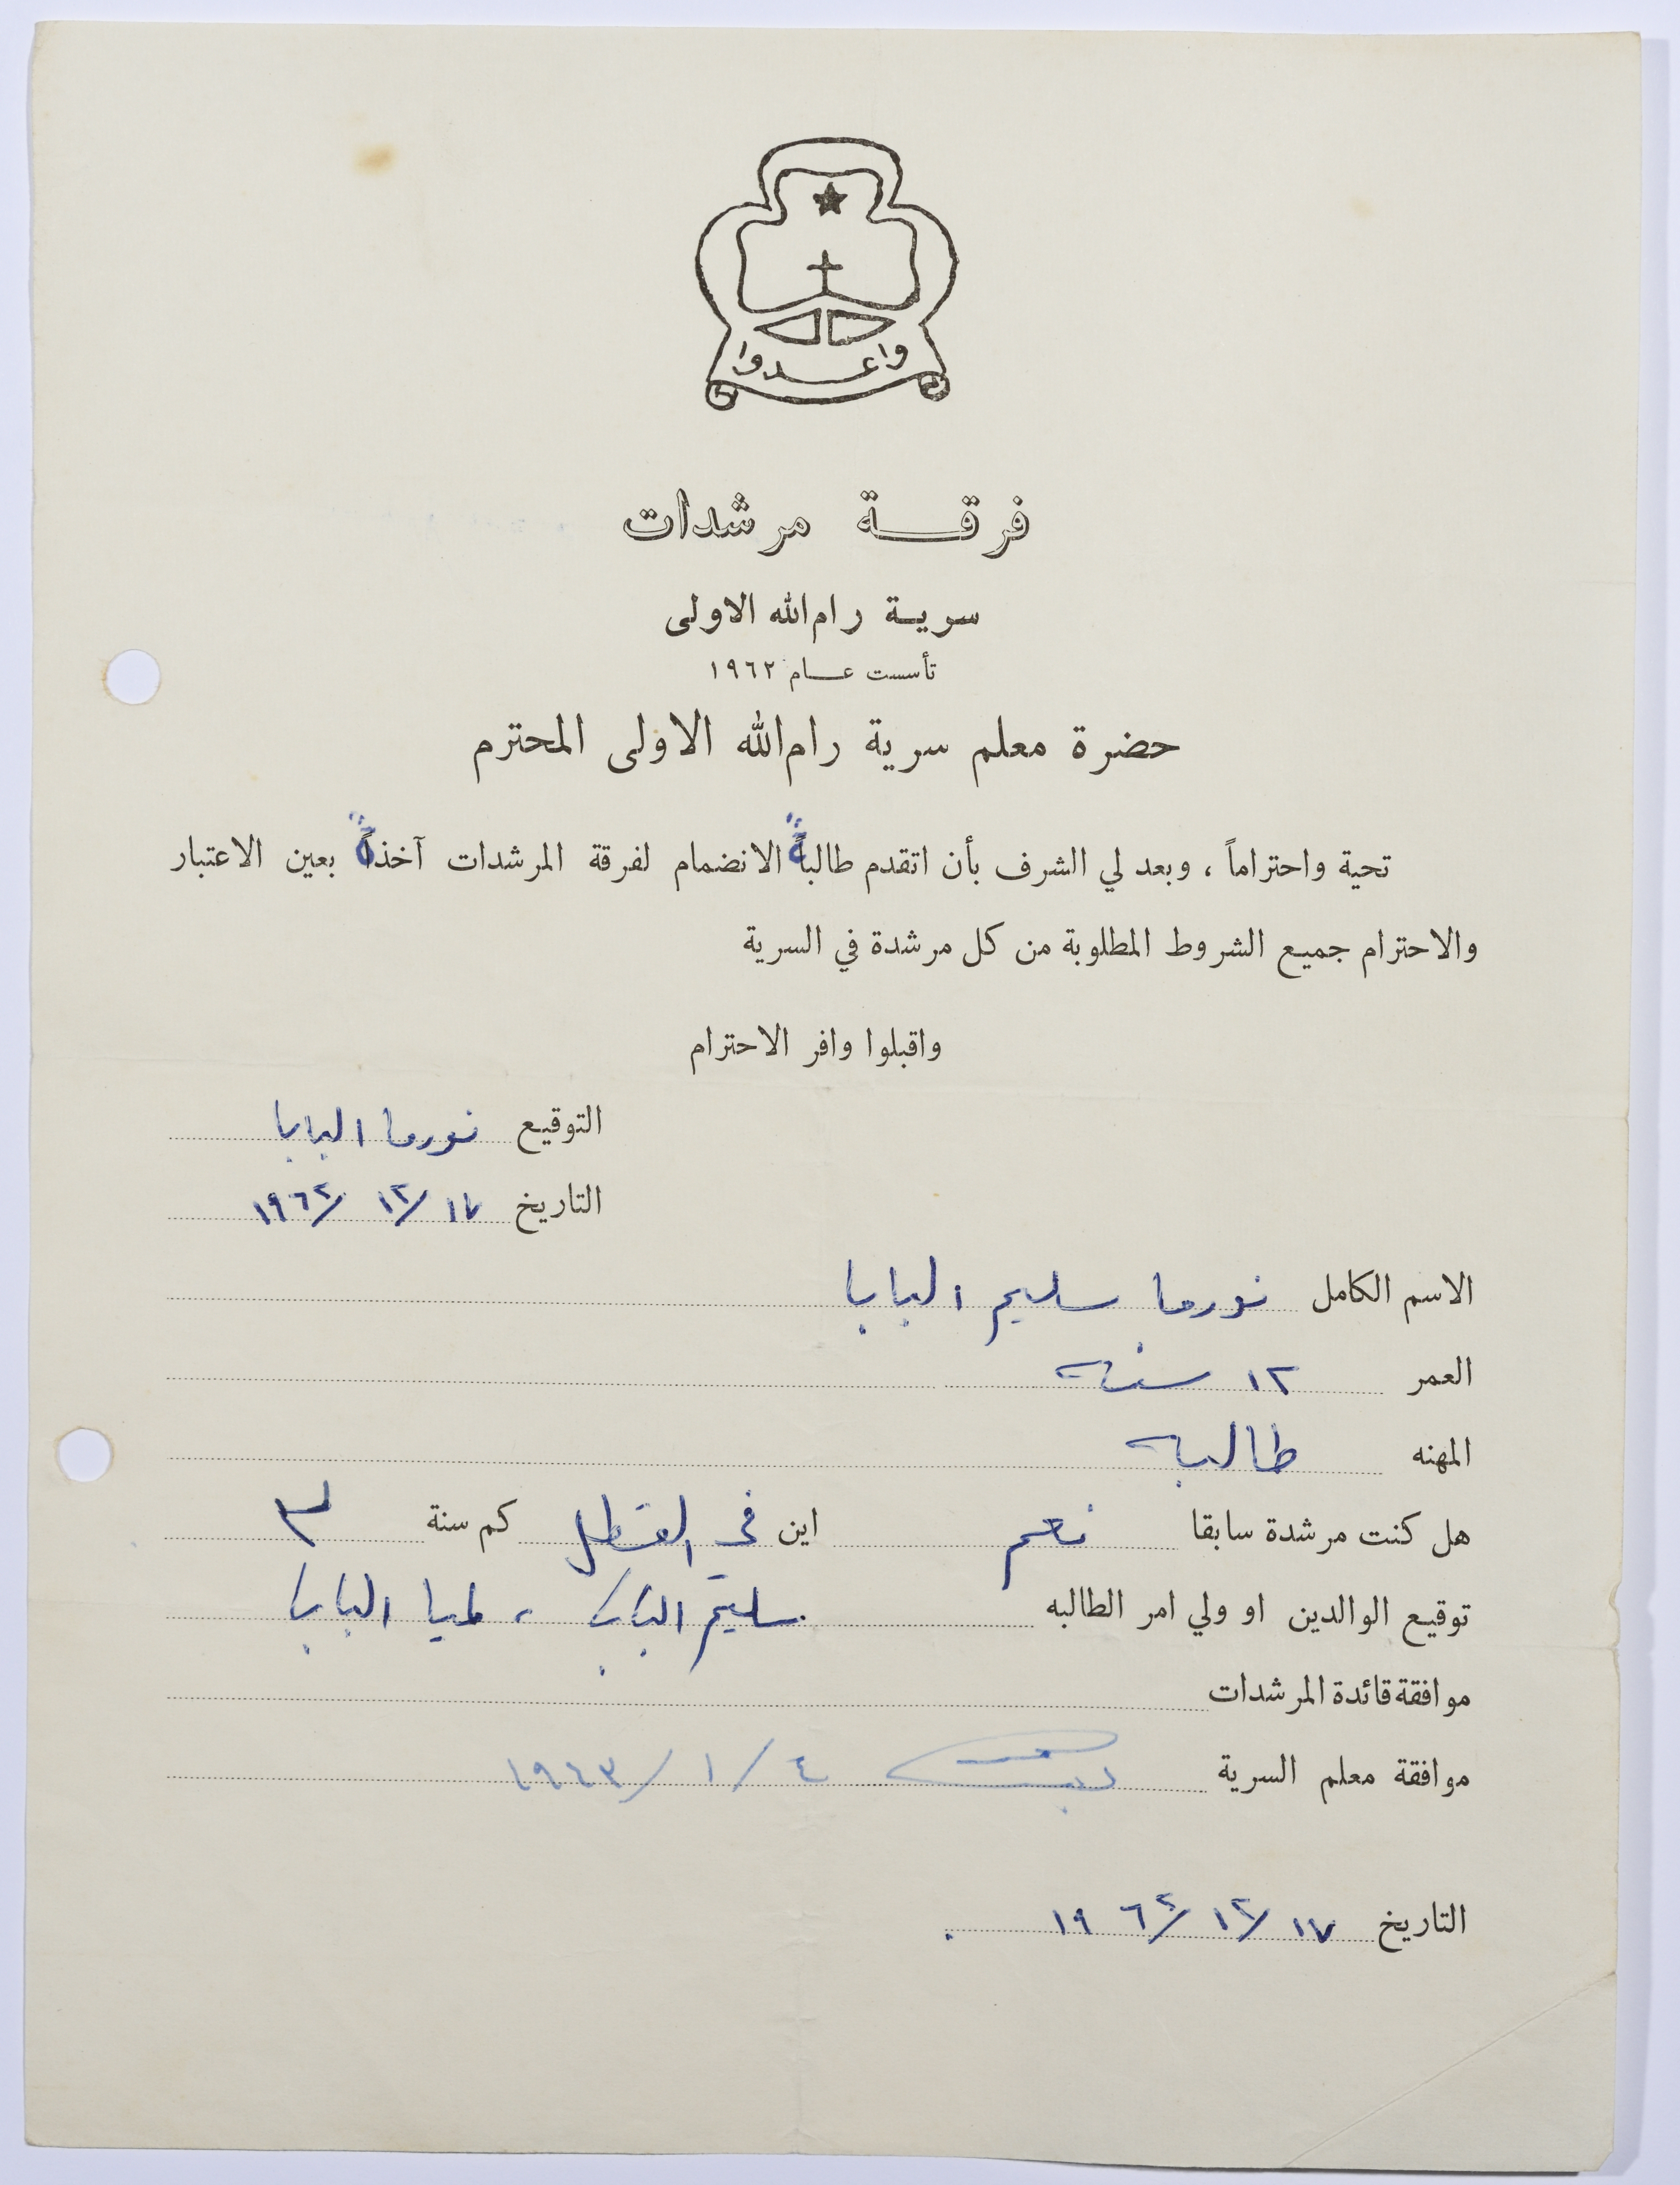 واعدوا
فرقة مرشدات
سرية رام الله الاولى
تأسست عام ١٩٦٢
حضرة معلم سرية رام الله الاولى المحترم
تحية واحتراماً ، وبعد لي الشرف بأن اتقدم طالبةً الانضمام لفرقة المرشدات آخذةً بعين الاعتبار
والاحترام جميع الشروط المطلوبة من كل مرشدة في السرية
واقبلوا وافر الاحترام
التوقيع نورما البابا
التاريخ ١٧/ ١٢/ ١٩٦٢
الاسم الكامل نورما سليم البابا
العمر ١٢ سنة
المهنه طالبة
هل كنت مرشدة سابقا نعم اين في كم سنة ٣
توقيع الوالدين او ولي امر الطالبه سليم البابا ، لميا البابا
موافقة قائدة المرشدات
موافقة معلم السرية ٤ / ١ / ١٩٦٣
التاريخ ١٧/ ١٢/ ١٩٦٢